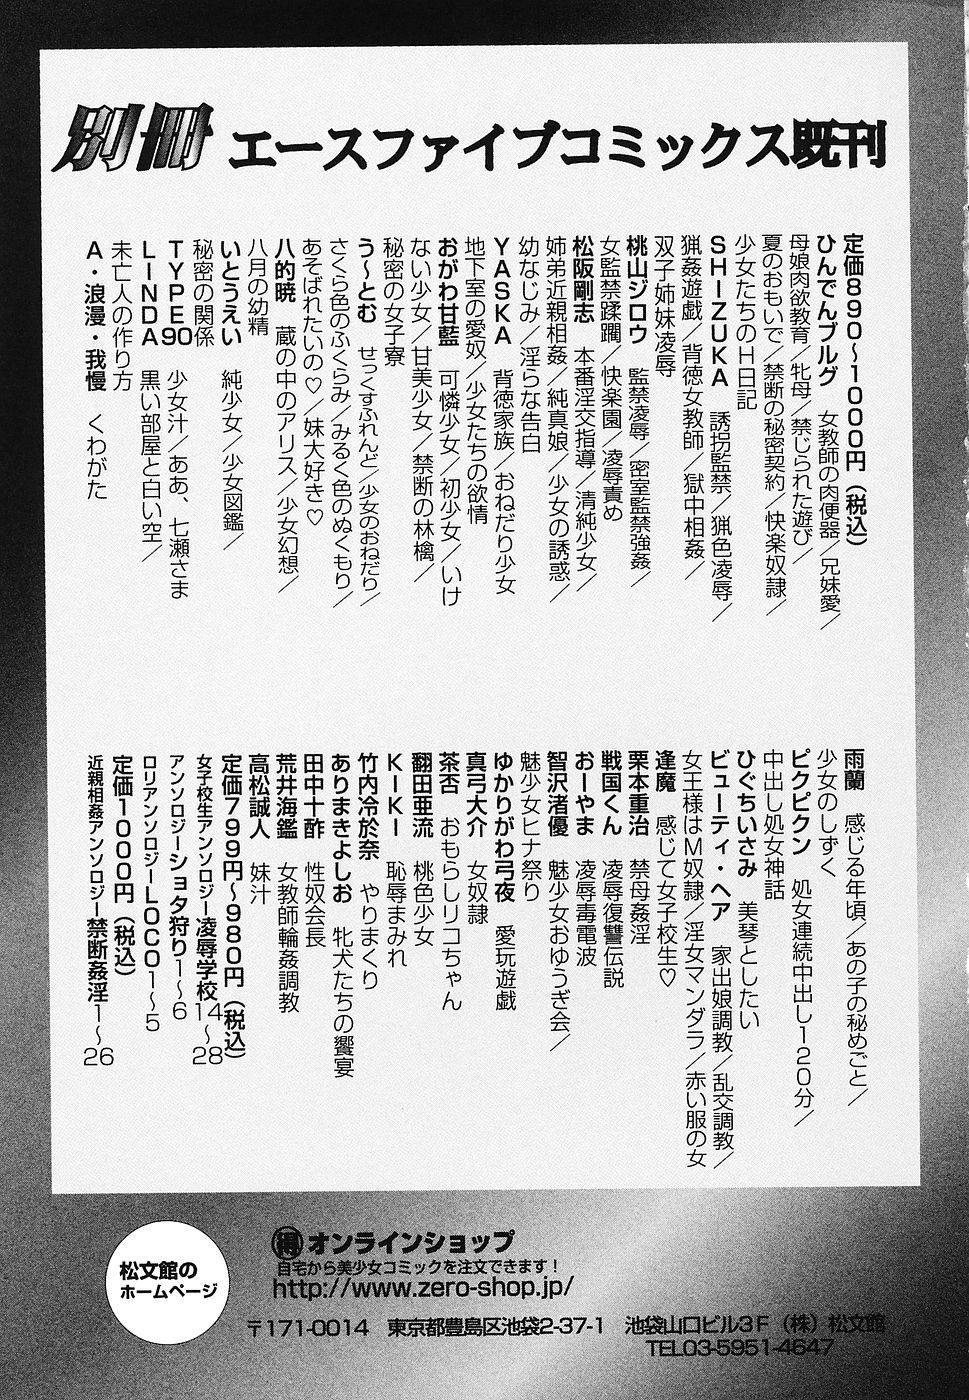 別冊 エースファイブコミックス既刊
定価890〜1000円（税込）
ひんでんブルグ　女教師の肉便器／兄妹愛／
母娘肉欲教育／牝母／禁じられた遊び／
夏のおもいで／禁断の秘密契約／快楽奴隷／
少女たちのH日記
SHIZUKA　誘拐監禁／猟色凌辱／
猟姦遊戯／背徳女教師／獄中相姦／
双子姉妹凌辱
桃山ジロウ　監禁凌辱／密室監禁強姦／
女監禁蹂躙／快楽園／凌辱責め
松阪剛志　本番淫交指導／清純少女／
姉弟近親相姦／純真娘／少女の誘惑／
幼なじみ／淫らな告白
YASKA　背徳家族／おねだり少女
地下室の愛奴／少女たちの欲情
おがわ甘藍　可憐少女／初少女／いけ
ない少女／甘美少女／禁断の林檎／
秘密の女子寮
う〜とむ　せっくすふれんど／少女のおねだり／
さくら色のふくらみ／みるく色のぬくもり／
あそばれたいの♡／妹大好き♡
八的暁　蔵の中のアリス／少女幻想／
八月の幼精
いとうえい　純少女／少女図鑑／
秘密の関係
TYPE90　少女汁／ああ、七瀬さま
LINDA　黒い部屋と白い空／
未亡人の作り方
A・浪漫・我慢　くわがた
雨蘭　感じる年頃／あの子の秘めごと／
少女のしずく
ピクピクン　処女連続中出し120分／
中出し処女神話
ひぐちいさみ　美琴としたい
ビューティ・ヘア　家出娘調教／乱交調教／
女王様はM奴隷／淫女マンダラ／赤い服の女
逢魔　感じて女子校生♡
栗本重治　禁母姦淫
戦国くん　凌辱復讐伝説
おーやま　凌辱毒電波
智沢渚優　魅少女おゆうぎ会／
魅少女ヒナ祭り
ゆかりがわ弓夜　愛玩遊戯
真弓大介　女奴隷
茶否　おもらしリコちゃん
翻田亜流　桃色少女
KIKI　恥辱まみれ
竹内冷於奈　やりまくり
ありまきよしお　牝犬たちの饗宴
田中十酢　性奴会長
荒井海鑑　女教師輪姦調教
高松誠人　妹汁
定価799円〜980円（税込）
女子校生アンソロジー凌辱学校14〜28
アンソロジーショタ狩り1〜6
ロリアンソロジーLOCO1〜5
定価1000円（税込）
近親相姦アンソロジー禁断姦淫1〜26
松文館の
ホームページ
得オンラインショップ
自宅から美少女コミックを注文できます！
http://www.zero-shop.jp/
〒171-0014　東京都豊島区池袋2-37-1　池袋山口ビル3F（株）松文館
TEL03-5951-4647